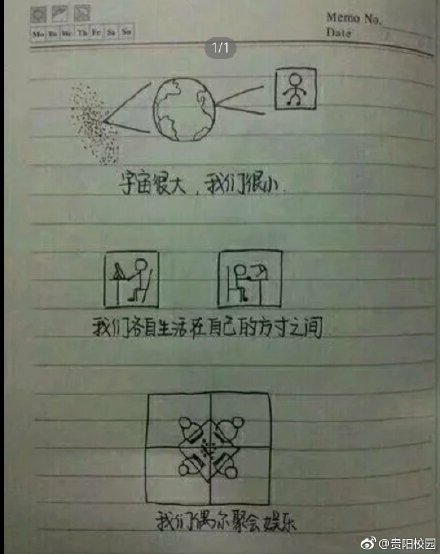 Memo No.
Mo Tu We Th Fr Sa Su
Date
1/1
宇宙很大，我们很小.
我们各自生活在自己的方寸之间
我们偶尔聚会娱乐
@贵阳校园